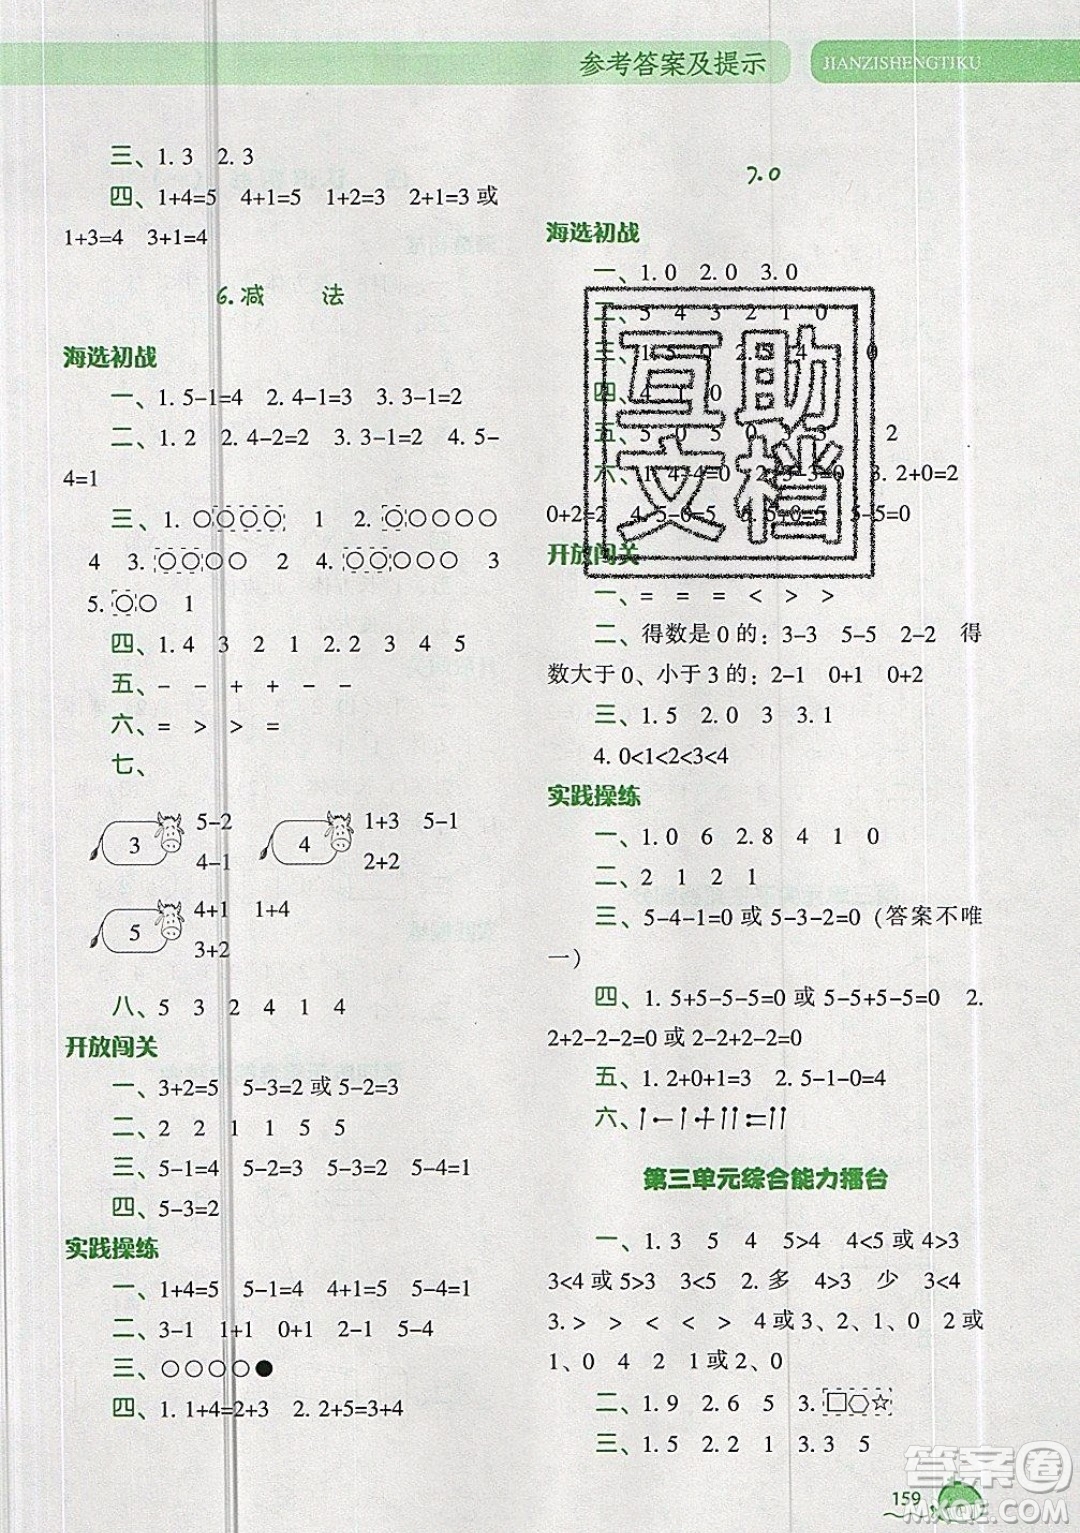 参考答案及提示
JIANZISHENGTIKU
三、1. 3 2. 3
四、1+4=5 4+1=5 1+2=3 2+1=3 或
1+3=4 3+1=4
6. 减 法
海选初战
一、1. 5-1=4 2. 4-1=3 3. 3-1=2
二、1. 2 2. 4-2=2 3. 3-1=2 4. 5-
4=1
三、1. ○○○○○ 1 2. ○○○○○
4 3. ○○○○○ 2 4. ○○○○○ 3
5. ○○ 1
四、1. 4 3 2 1 2. 2 3 4 5
五、- - + + - -
六、= > > =
七、
3 5-2 4-1
4 1+3 5-1 2+2
5 4+1 1+4 3+2
八、5 3 2 4 1 4
开放闯关
一、3+2=5 5-3=2 或 5-2=3
二、2 2 1 1 5 5
三、5-1=4 5-2=3 5-3=2 5-4=1
四、5-3=2
实践操练
一、1+4=5 5-1=4 4+1=5 5-4=1
二、3-1 1+1 0+1 2-1 5-4
三、○○○○●
四、1. 1+4=2+3 2. 2+5=3+4
7. 0
海选初战
一、1. 0 2. 0 3. 0
二、5 4 3 2 1 0
三、1. 5 0 2. 5 4 0
四、4 1 0
五、5 0 5 0 5 1 2
六、1. 4-4=0 2. 3-3=0 3. 2+0=2
0+2=2 4. 5-0=5 5+0=5 5-5=0
互助文档
开放闯关
一、= = = < > >
二、得数是 0 的：3-3 5-5 2-2 得
数大于 0、小于 3 的：2-1 0+1 0+2
三、1. 5 2. 0 3 3. 1
4. 0<1<2<3<4
实践操练
一、1. 0 6 2. 8 4 1 0
二、2 1 2 1
三、5-4-1=0 或 5-3-2=0（答案不唯
一）
四、1. 5+5-5-5=0 或 5-5+5-5=0 2.
2+2-2-2=0 或 2-2+2-2=0
五、1. 2+0+1=3 2. 5-1-0=4
六、1-1+11=11
第三单元综合能力擂台
一、1. 3 5 4 5>4 4<5 或 4>3
3<4 或 5>3 3<5 2. 多 4>3 少 3<4
3. > > < < > 4 或 3、2、1、0 2 或
1、0 4 2 1 或 2、0
二、1. 9 2. 6 5 3. □⬡☆
三、1. 5 2. 2 1 3. 3 5
159
答案圈
MXQE.COM